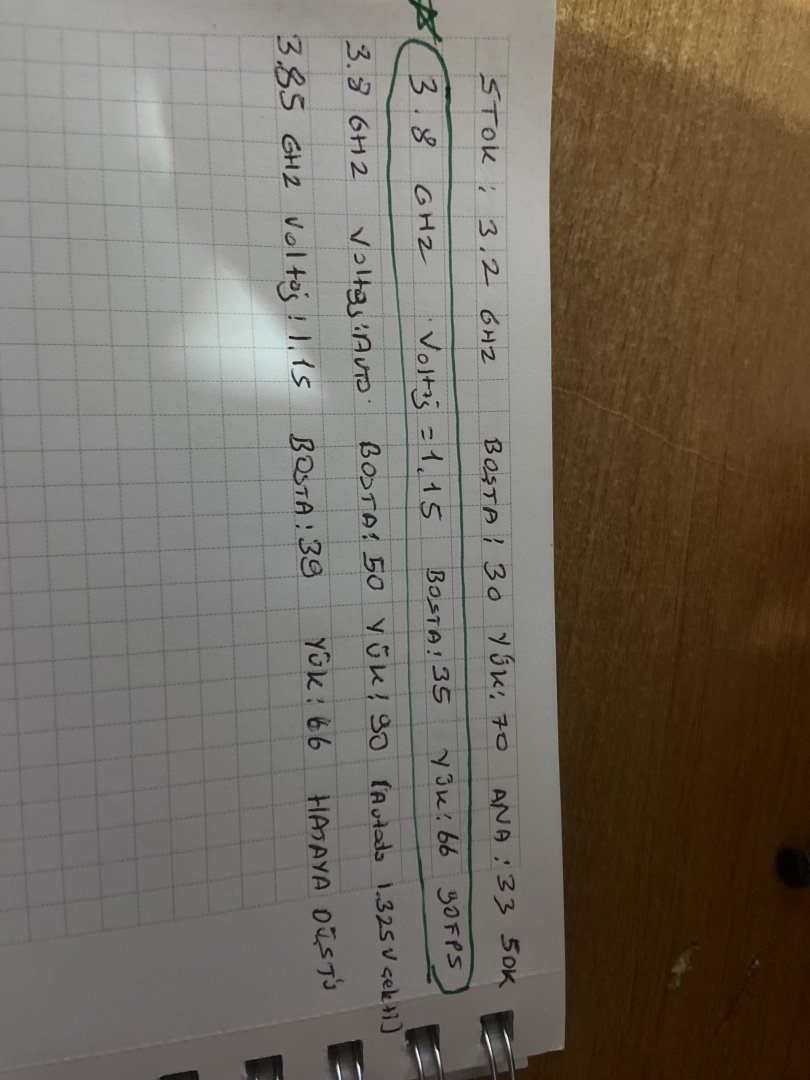 STOK : 3.2 GHZ BOŞTA : 30 YÜK: 70 ANA : 33 50K
3.8 GHZ Voltaj = 1,15 BOŞTA : 35 YÜK : 66 90FPS
3.8 GHZ Voltaj : AUTO BOŞTA : 50 YÜK : 90 (Autoda 1.325V çekti)
3.85 GHZ Voltaj : 1,15 BOŞTA : 39 YÜK : 66 HATAYA DÜŞTÜ